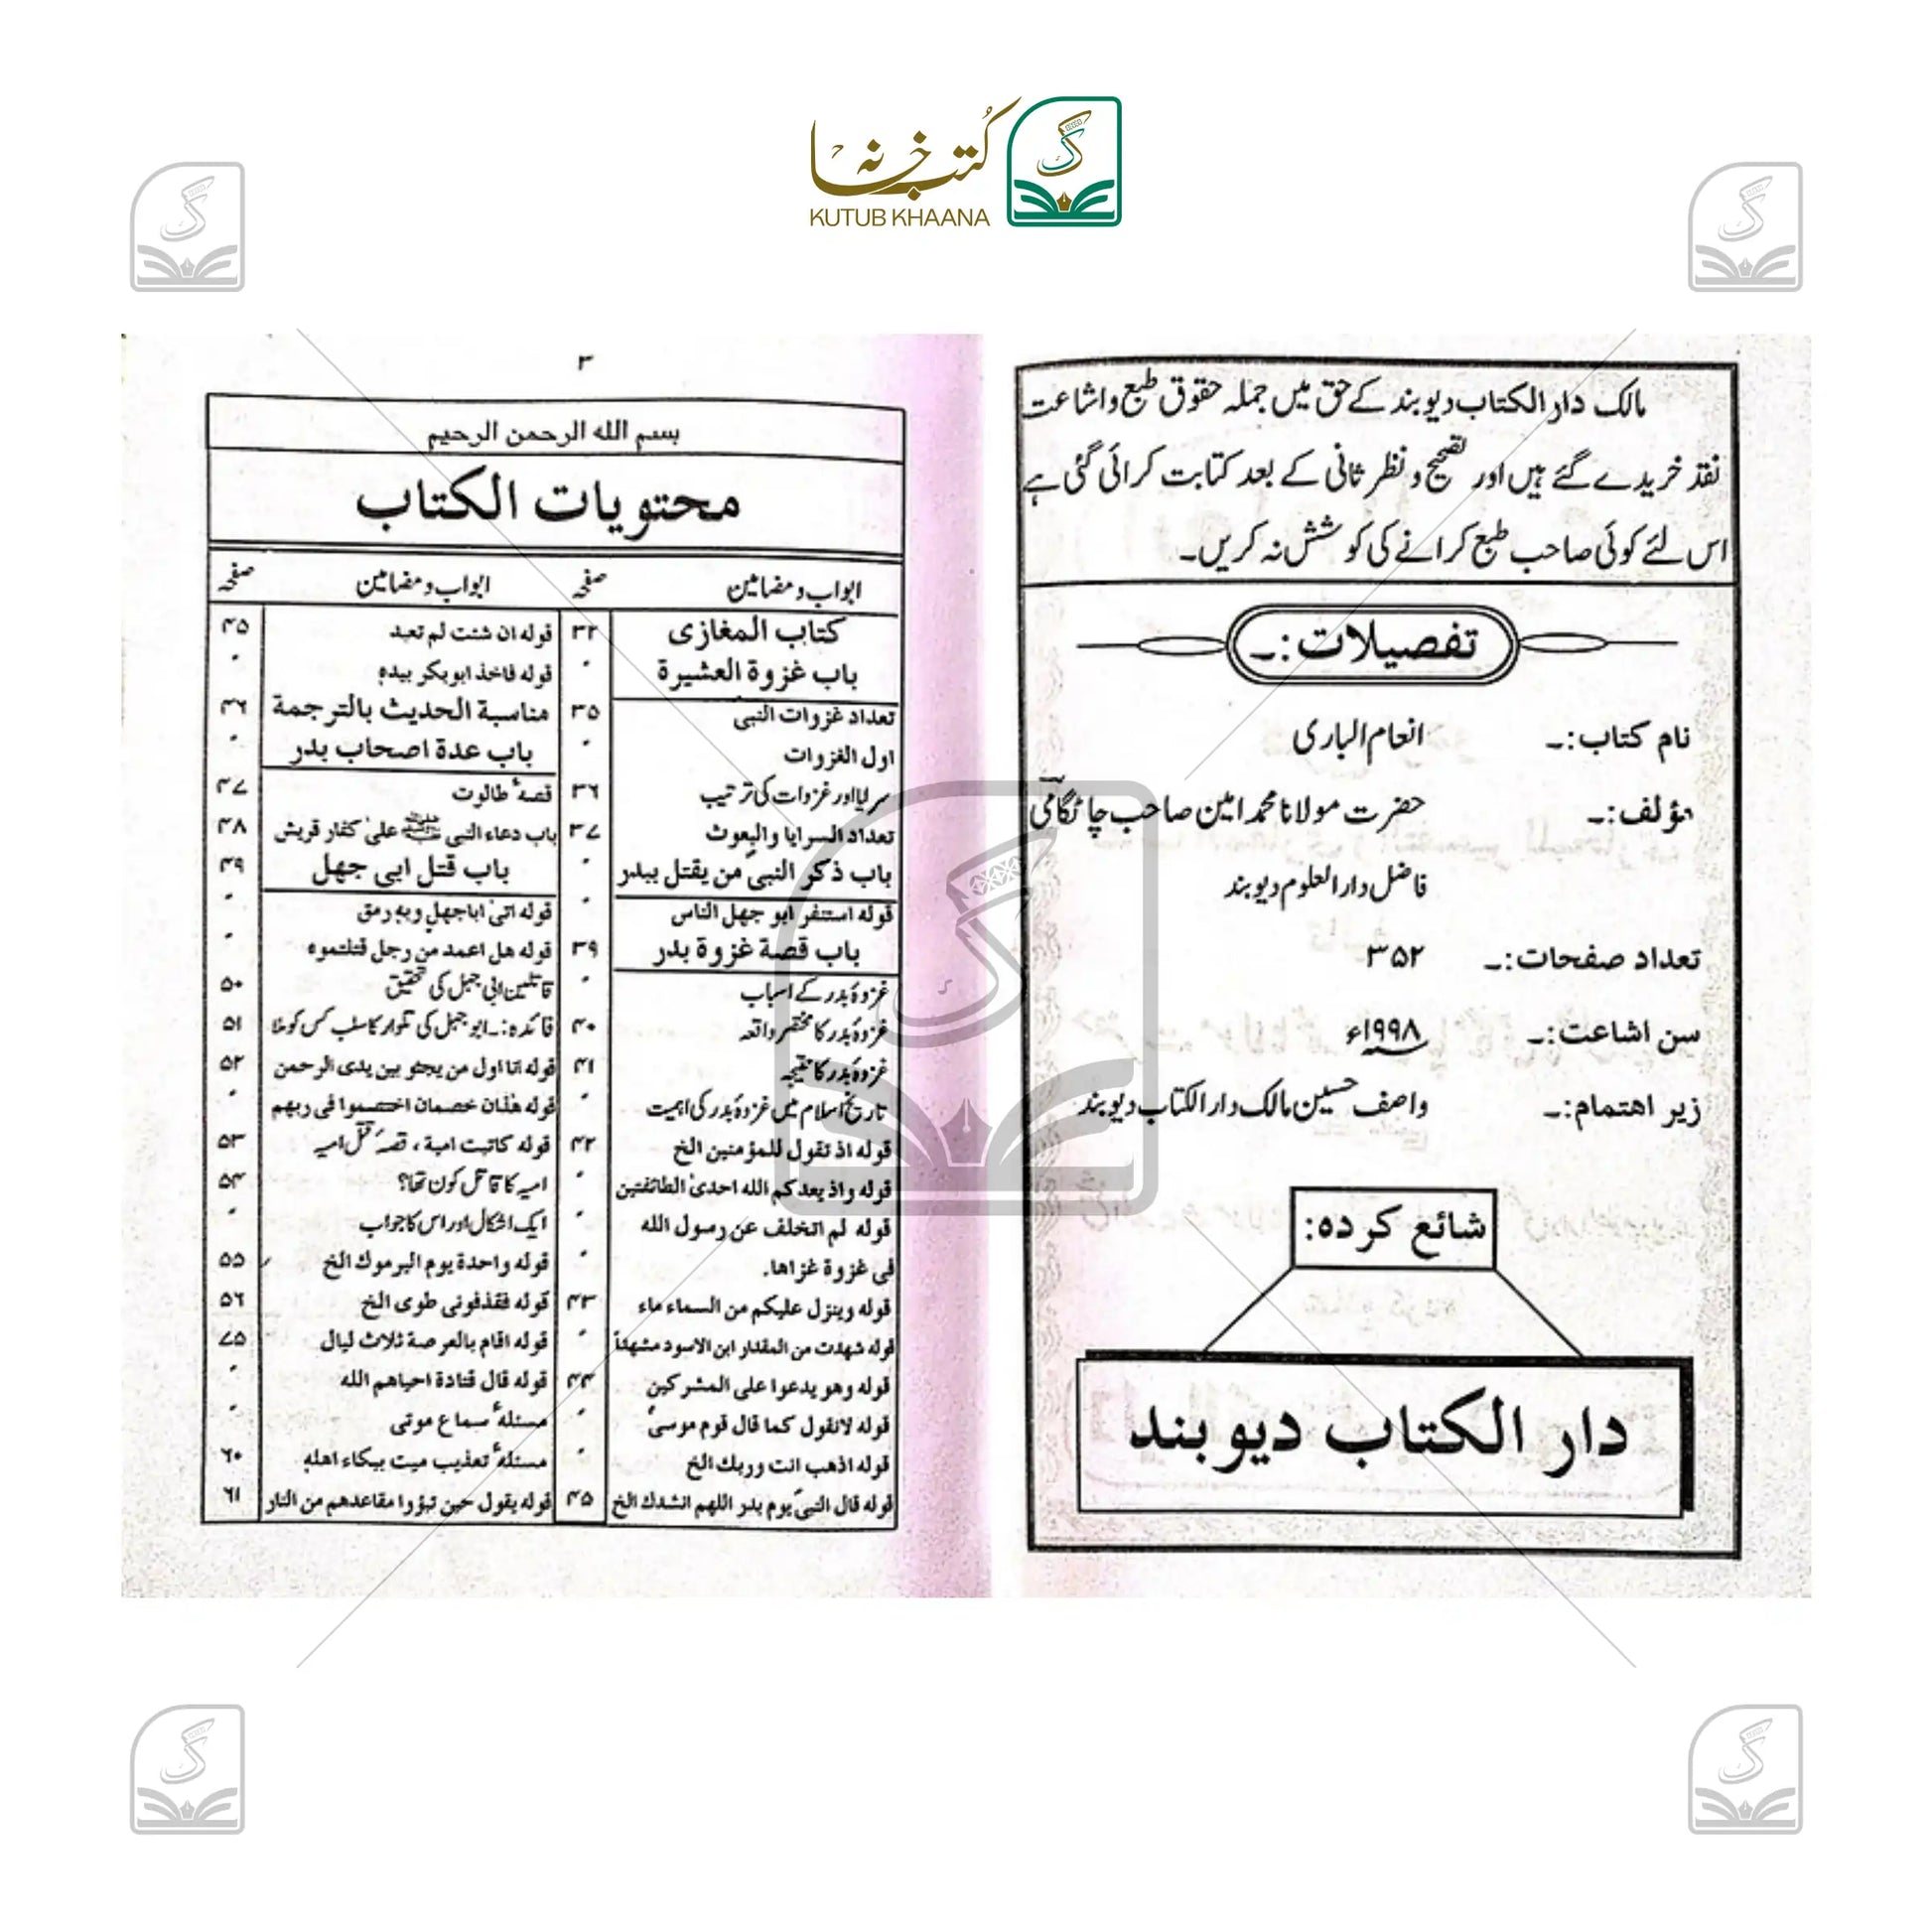 کتب خانہ
KUTUB KHAANA
مالک دار الکتاب دیوبند کے حق میں جملہ حقوق طبع و اشاعت
نقد خریدے گئے ہیں اور تصحیح و نظر ثانی کے بعد کتابت کرائی گئی ہے
اس لئے کوئی صاحب طبع کرانے کی کوشش نہ کریں۔
تفصیلات:۔
نام کتاب:۔ انعام الباری
مؤلف:۔ حضرت مولانا محمد امین صاحب چاٹگامی
فاضل دارالعلوم دیوبند
تعداد صفحات:۔ ۳۵۲
سن اشاعت:۔ ۱۹۹۸ء
زیر اهتمام:۔ واصف حسین مالک دار الکتاب دیوبند
شائع کردہ:
دار الکتاب دیوبند
۳
بسم الله الرحمن الرحيم
محتویات الکتاب
ابواب و مضامین صفحہ ابواب و مضامین صفحہ
کتاب المغازی ۳۲
باب غزوة العشيرة ٴ
تعداد غزوات النبی ۳۵
اول الغزوات ٴ
سرایا اور غزوات کی ترتیب ۳۶
تعداد السرایا والبعوث ۳۷
باب ذکر النبی من یقتل ببدر ٴ
قوله استنفر ابو جهل الناس ٴ
باب قصة غزوة بدر ۳۹
غزوۂ بدر کے اسباب ٴ
غزوۂ بدر کا مختصر واقعہ ۴۰
غزوۂ بدر کا نتیجہ ۴۱
تاریخ اسلام میں غزوۂ بدر کی اہمیت ٴ
قوله اذ تقول للمؤمنین الخ ۴۲
قوله واذ یعدکم الله احدیٰ الطائفتین ٴ
قوله لم اتخلف عن رسول الله ٴ
فی غزوة غزاها. ٴ
قوله وینزل علیکم من السماء ماء ۴۳
قوله شهدت من المقداد ابن الاسود مشهداً ٴ
قوله وهو یدعوا علی المشرکین ۴۴
قوله لانقول کما قال قوم موسیٰ ٴ
قوله اذهب انت وربك الخ ٴ
قوله قال النبی یوم بدر اللهم انشدك الخ ۴۵
قوله ان شئت لم تعبد ۴۵
قوله فاخذ ابوبکر بیده ٴ
مناسبة الحدیث بالترجمة ۴۶
باب عدة اصحاب بدر ٴ
قصۂ طالوت ۴۷
باب دعاء النبی ﷺ علیٰ کفار قریش ۴۸
باب قتل ابی جهل ۴۹
قوله اتیٰ اباجهل وبه رمق ٴ
قوله هل اعمد من رجل قتلتموه ٴ
قاتلین ابی جہل کی تحقیق ۵۰
فائدہ:۔ ابو جہل کی تلوار کا سلب کس کو ملا ۵۱
قوله انا اول من یجثو بین یدی الرحمن ۵۲
قوله هٰذان خصمان اختصموا فی ربهم ٴ
قوله کاتبت امیة، قصۂ قتل امیہ ۵۳
امیہ کا قاتل کون تھا؟ ۵۴
ایک اشکال اور اس کا جواب ٴ
قوله واحدة یوم الیرموك الخ ۵۵
قوله فقذفونی طوی الخ ۵۶
قوله اقام بالعرصة ثلاث لیال ۵۷
قوله قال قتادة احیاهم الله ٴ
مسئلۂ سماع موتی ٴ
مسئلۂ تعذیب میت ببکاء اهله ۶۰
قوله یقول حین تبؤوا مقاعدهم من النار ۶۱